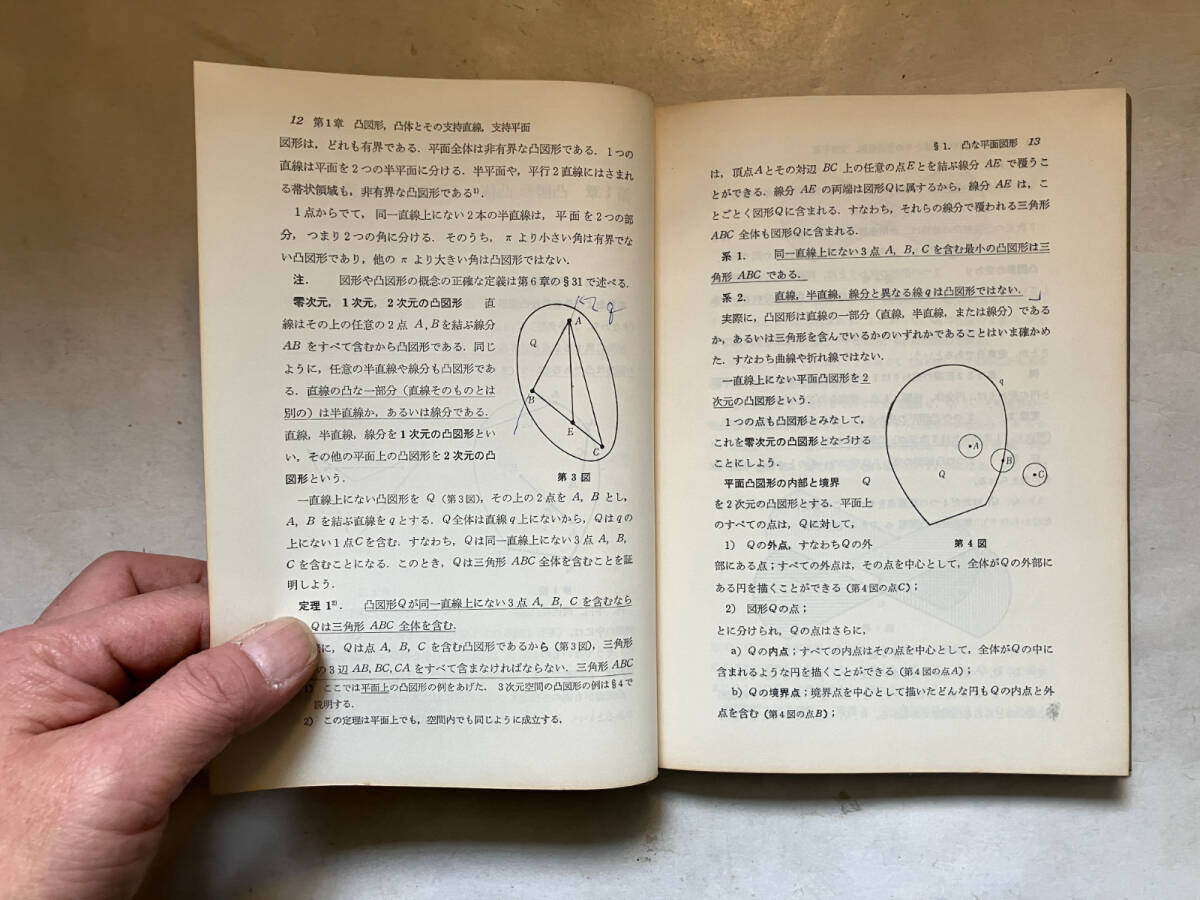 12 第1章 凸図形, 凸体とその支持直線, 支持平面
図形は, どれも有界である. 平面全体は非有界な凸図形である. 1つの
直線は平面を2つの半平面に分ける. 半平面や, 平行2直線にはさまれ
る帯状領域も, 非有界な凸図形である¹⁾.
1点からでて, 同一直線上にない2本の半直線は, 平面を2つの部
分, つまり2つの角に分ける. そのうち, π より小さい角は有界でな
い凸図形であり, 他の π より大きい角は凸図形ではない.
注. 図形や凸図形の概念の正確な定義は第6章の§31で述べる.
零次元, 1次元, 2次元の凸図形 直
線はその上の任意の2点 A, B を結ぶ線分
AB をすべて含むから凸図形である. 同じ
ように, 任意の半直線や線分も凸図形であ
る. 直線の凸な一部分(直線そのものとは
別の)は半直線か, あるいは線分である.
直線, 半直線, 線分を1次元の凸図形とい
い, その他の平面上の凸図形を2次元の凸
図形という.
q
A
Q
B
E
C
第3図
一直線上にない凸図形を Q (第3図), その上の2点を A, B とし,
A, B を結ぶ直線を q とする. Q全体は直線 q 上にないから, Qは q の
上にない1点Cを含む. すなわち, Qは同一直線上にない3点 A, B,
C を含むことになる. このとき, Qは三角形 ABC 全体を含むことを証
明しよう.
定理 1²⁾. 凸図形Qが同一直線上にない3点 A, B, C を含むなら
Qは三角形 ABC 全体を含む.
に, Qは点 A, B, C を含む凸図形であるから (第3図), 三角形
の3辺 AB, BC, CA をすべて含まなければならない. 三角形 ABC
1) ここでは平面上の凸図形の例をあげた. 3次元空間の凸図形の例は§4で
説明する.
2) この定理は平面上でも, 空間内でも同じように成立する.
§1. 凸な平面図形 13
は, 頂点Aとその対辺 BC 上の任意の点Eとを結ぶ線分 AE で覆うこ
とができる. 線分 AE の両端は図形Qに属するから, 線分 AE は, こ
とごとく図形Qに含まれる. すなわち, それらの線分で覆われる三角形
ABC 全体も図形Qに含まれる.
系 1. 同一直線上にない3点 A, B, C を含む最小の凸図形は三
角形 ABC である.
系 2. 直線, 半直線, 線分と異なる線 q は凸図形ではない.
実際に, 凸図形は直線の一部分(直線, 半直線, または線分)である
か, あるいは三角形を含んでいるかのいずれかであることはいま確かめ
た. すなわち曲線や折れ線ではない.
一直線上にない平面凸図形を2
次元の凸図形という.
1つの点も凸図形とみなして,
これを零次元の凸図形となづける
ことにしよう.
平面凸図形の内部と境界 Q
を2次元の凸図形とする. 平面上
のすべての点は, Qに対して,
q
A
B
C
Q
第4図
1) Qの外点, すなわちQの外
部にある点; すべての外点は, その点を中心として, 全体がQの外部に
ある円を描くことができる (第4図の点C);
2) 図形Qの点;
とに分けられ, Qの点はさらに,
a) Qの内点; すべての内点はその点を中心として, 全体がQの中に
含まれるような円を描くことができる (第4図の点A);
b) Qの境界点; 境界点を中心として描いたどんな円もQの内点と外
点を含む (第4図の点B);